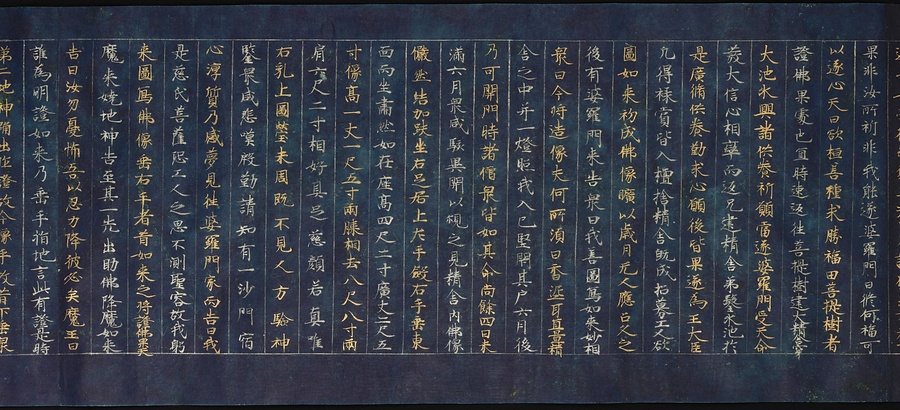 果非汝所祈非我能遂婆羅門曰脩何福可
以遂心天曰欲植善種求勝福田菩提樹者
證佛果處也宜時速返往菩提樹建大精舍穿
大池水興諸供養所願當遂婆羅門受天命
發大信心相率而返兄建精舍弟鑿水池於
是廣脩供養勤求心願後皆果遂為王大臣
凡得祿賞皆入檀捨精舍既成招募工人欲
圖如來初成佛像曠以歲月无人應召久之
後有婆羅門來告眾曰我善圖寫如來妙相
眾曰今將造像夫何所須曰香泥耳宜置精
舍之中并一燈照我入已堅閇其戶六月後
乃可開門時諸僧眾皆如其命尚餘四日未
滿六月眾咸駭異開以觀之見精舍內佛像
儼然結加趺坐右足居上左手斂右手垂東
面而坐肅然如在座高四尺二寸廣丈二尺五
寸像高一丈一尺五寸兩膝相去八尺八寸兩
肩六尺二寸相好具足慈顏若真唯
右乳上圖瑩未周既不見人方驗神
鑒眾咸悲歎殷勤請知有一沙門宿
心淳質乃感夢見往婆羅門家而告曰我
是慈氏菩薩恐工人之思不測聖容故我躬
來圖寫佛像垂右手者昔如來之將證佛果天
魔來嬈地神告至其一先出助佛降魔如來
告曰汝勿憂怖吾以忍力降彼必矣魔王曰
誰為明證如來乃垂手指地言此有證是時
第二地神踊出作證故今像手倣昔下垂眾